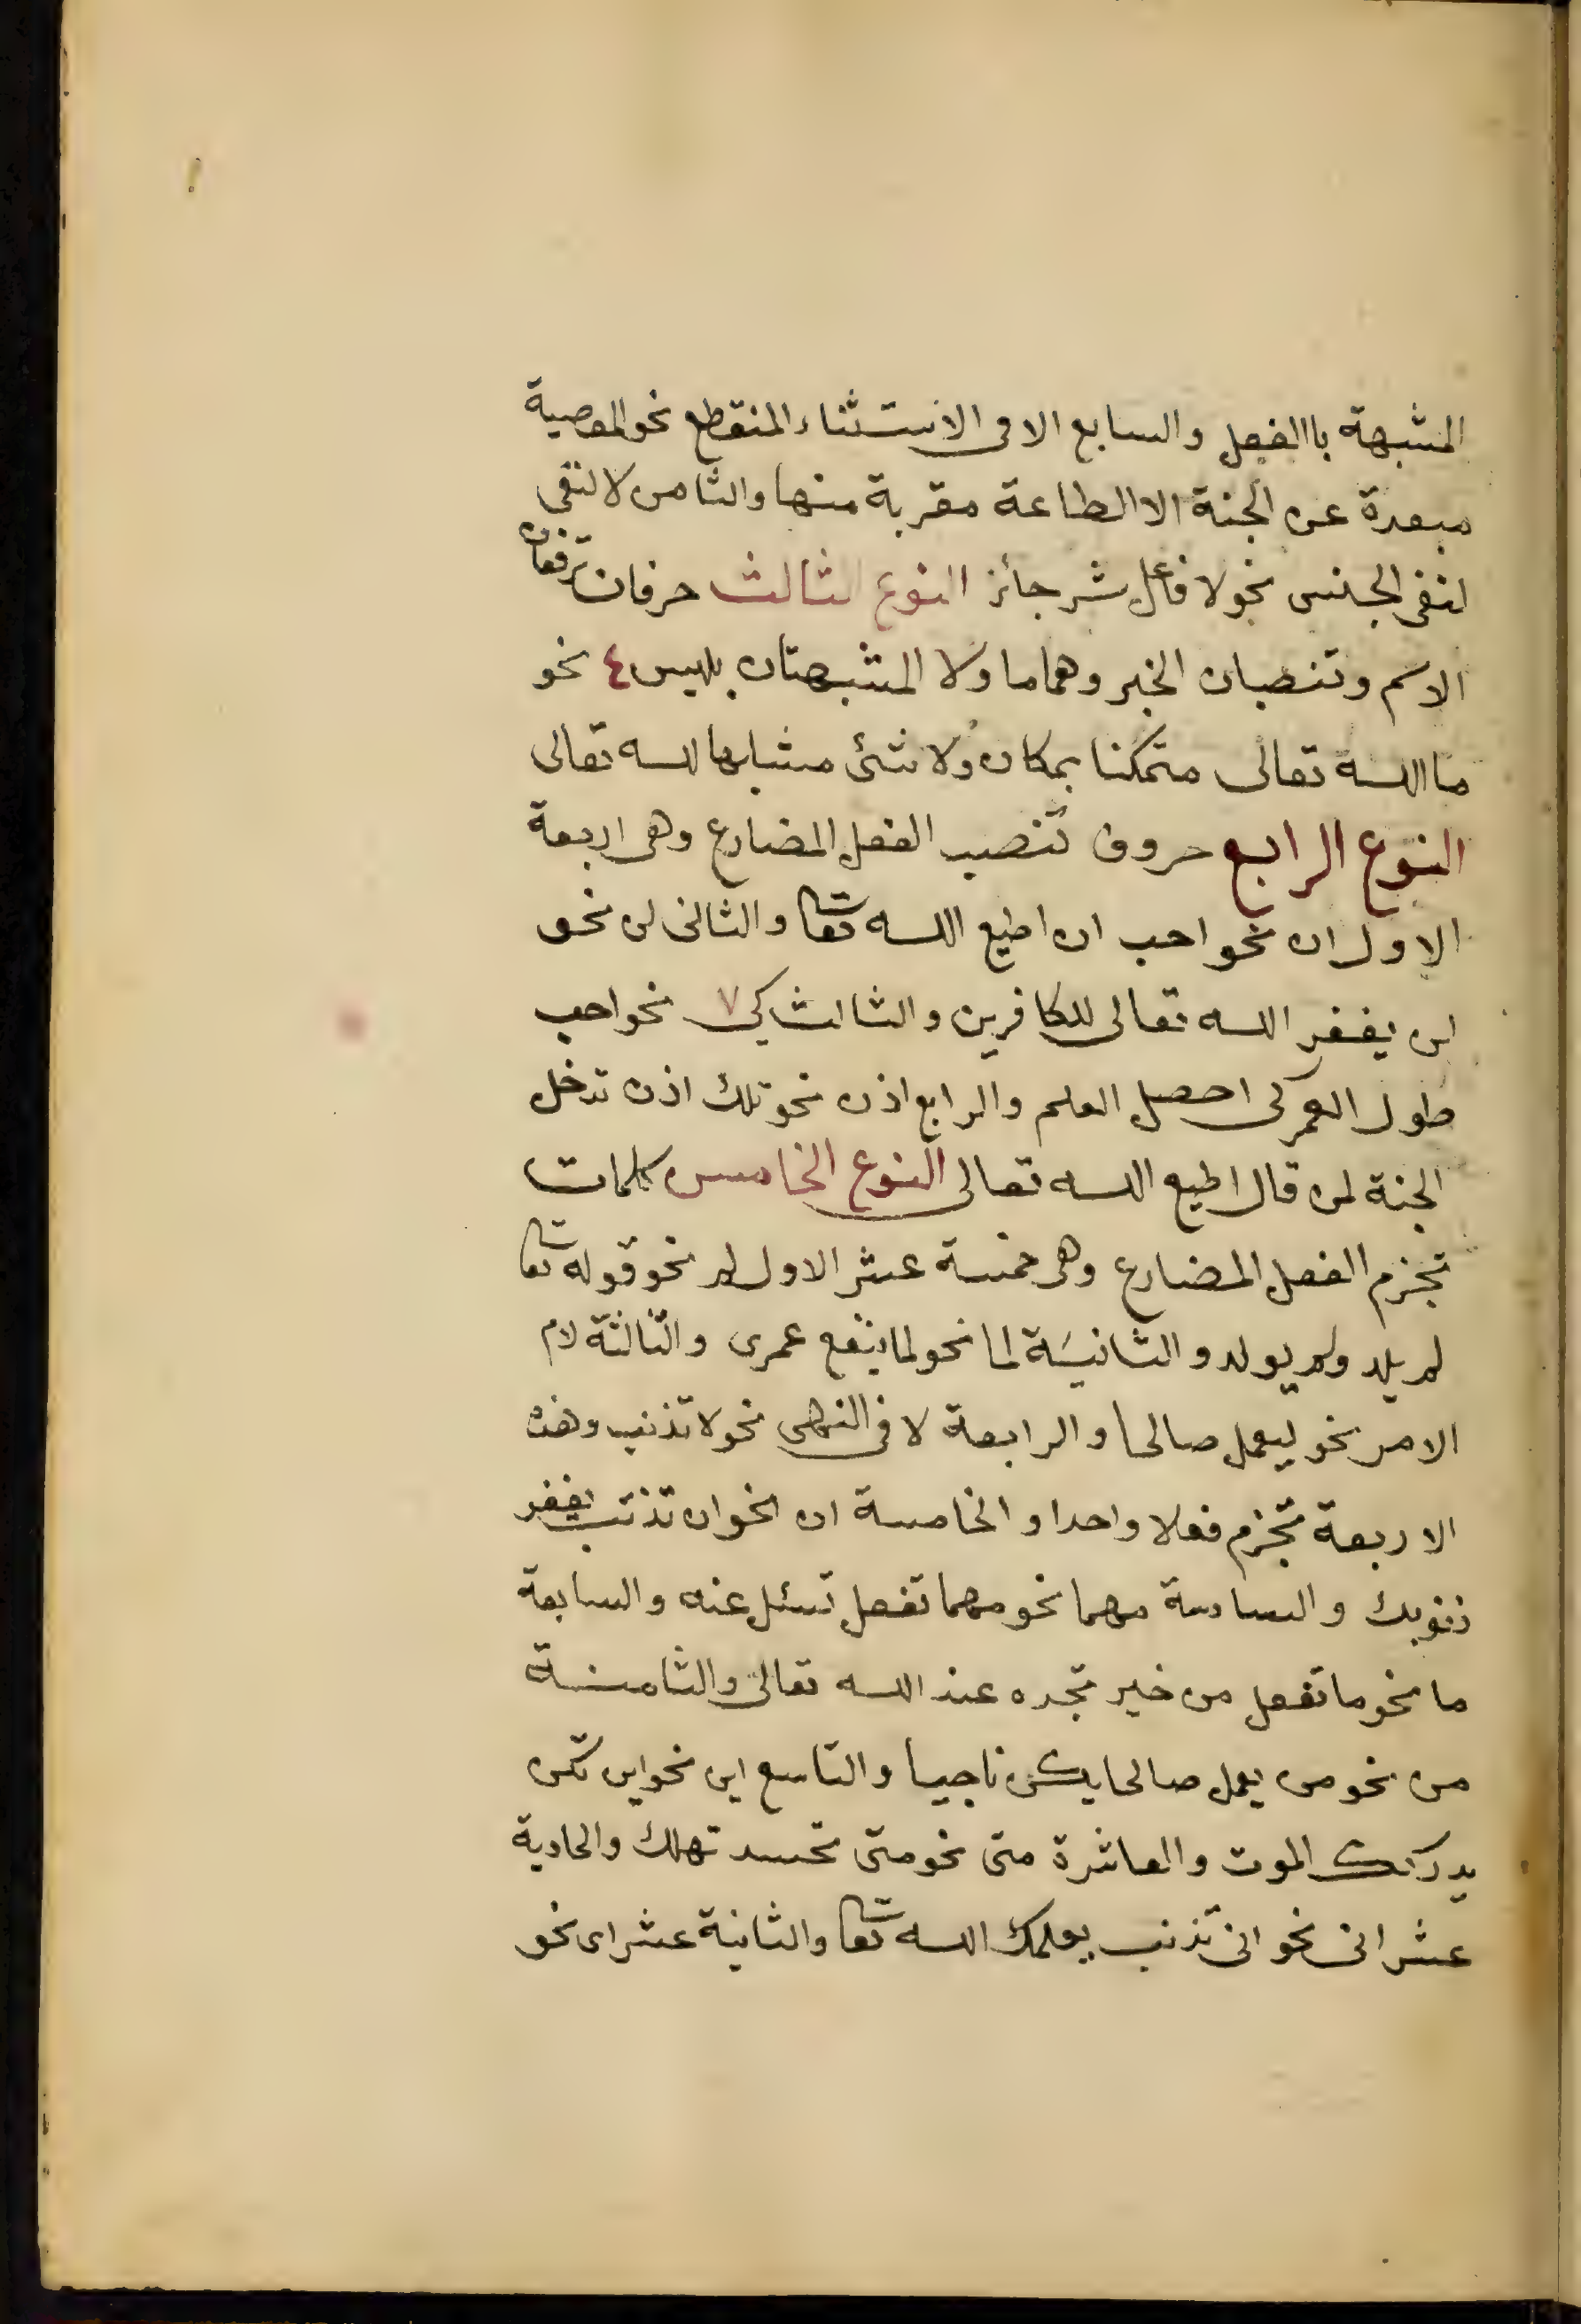 المشبهة باالفعل والسابع الا فى الاستثناء المنقطع نحو المعصية
مبعدة عن الجنة الا الطاعة مقربة منها والثامن لا لنفى
لنفى الجنس نحو لا فاعل شر جائز النوع الثالث حرفان ترفعان
الاسم وتنصبان الخبر وهما ما ولا المشبهتان بليس ٤ نحو
ما الله تعالى متمكنا بمكان ولا شئ مشابها لله تعالى
النوع الرابع حروف تنصب الفعل المضارع وهى اربعة
الاول ان نحو احب ان اطيع الله تعا والثانى لن نحو
لن يغفر الله تعالى للكافرين والثالث كى ٧ نحو احب
طول العمر كى احصل العلم والرابع اذن نحو تلك اذن تدخل
الجنة لمن قال اطيع الله تعالى النوع الخامس كلمات
تجزم الفعل المضارع وهى خمسة عشر الاول لم نحو قوله تعا
لم يلد ولم يولد و الثانية لما نحو لما ينفع عمرى والثالثة لام
الامر نحو ليعمل صالحا والرابعة لا فى النهى نحو لا تذنب وهذه
الاربعة تجزم فعلا واحدا و الخامسة ان نحو ان تذنب يغفر
ذنوبك والسادسة مهما نحو مهما تفعل تسئل عنه والسابعة
ما نحو ما تفعل من خير تجده عند الله تعالى والثامنة
من نحو من يعمل صالحا يكن ناجيا والتاسع اين نحو اين تكن
يدركك الموت والعاشرة متى نحو متى تحسد تهلك والحادية
عشر انى نحو انى تذنب يعلمك الله تعا والثانية عشر اى نحو